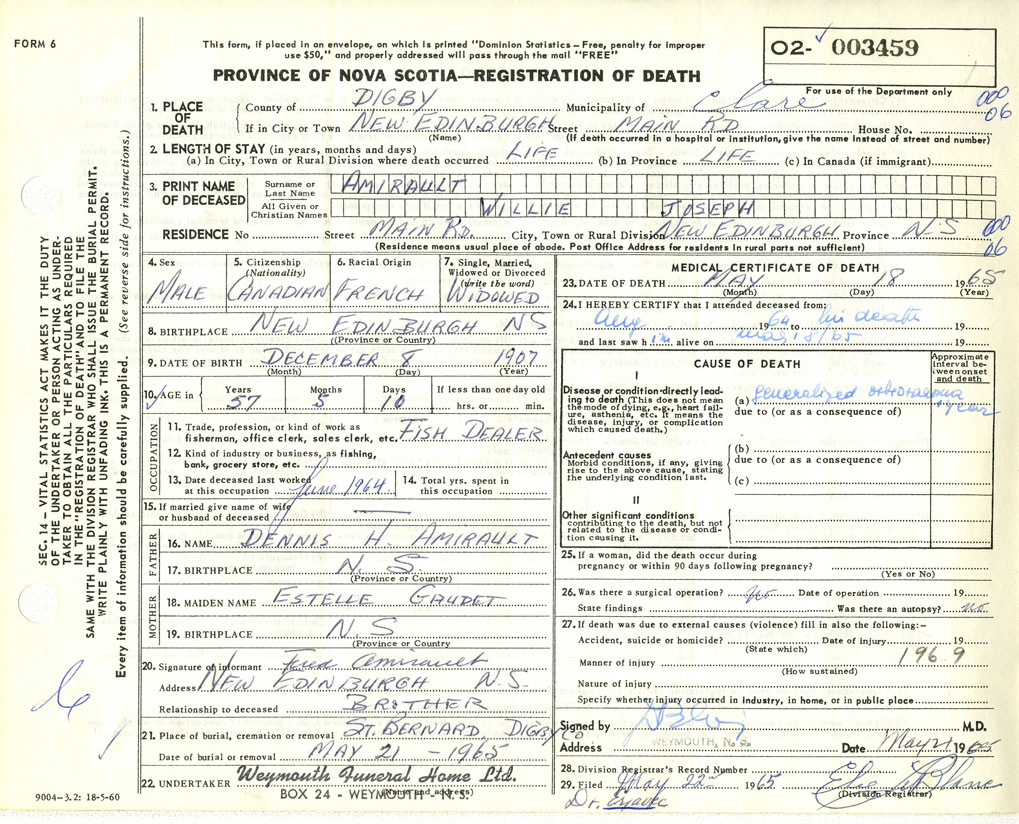 FORM 6
This form, if placed in an envelope, on which is printed "Dominion Statistics – Free, penalty for improper
use $50," and properly addressed will pass through the mail "FREE"
O2- 003459
PROVINCE OF NOVA SCOTIA—REGISTRATION OF DEATH
For use of the Department only
000
06
1. PLACE OF DEATH
County of DIGBY Municipality of Clare
If in City or Town NEW EDINBURGH Street MAIN RD House No.
(Name) (If death occurred in a hospital or institution, give the name instead of street and number)
2. LENGTH OF STAY (in years, months and days)
(a) In City, Town or Rural Division where death occurred LIFE (b) In Province LIFE (c) In Canada (if immigrant)
3. PRINT NAME OF DECEASED
Surname or Last Name AMIRAULT
All Given or Christian Names WILLIE JOSEPH
RESIDENCE No Street MAIN RD. City, Town or Rural Division NEW EDINBURGH Province N.S
000
06
(Residence means usual place of abode. Post Office Address for residents in rural parts not sufficient)
4. Sex MALE
5. Citizenship (Nationality) CANADIAN
6. Racial Origin FRENCH
7. Single, Married, Widowed or Divorced (write the word) WIDOWED
8. BIRTHPLACE NEW EDINBURGH NS
(Province or Country)
9. DATE OF BIRTH DECEMBER 8 1907
(Month) (Day) (Year)
10. AGE in Years 57 Months 5 Days 10 If less than one day old hrs. or min.
OCCUPATION
11. Trade, profession, or kind of work as
fisherman, office clerk, sales clerk, etc. FISH DEALER
12. Kind of industry or business, as fishing,
bank, grocery store, etc.
13. Date deceased last worked
at this occupation June 1964
14. Total yrs. spent in
this occupation
15. If married give name of wife
or husband of deceased
FATHER
16. NAME DENNIS H. AMIRAULT
17. BIRTHPLACE N. S.
(Province or Country)
MOTHER
18. MAIDEN NAME ESTELLE GAUDET
19. BIRTHPLACE N. S
(Province or Country
20. Signature of informant Fred Amirault
Address NEW EDINBURGH N.S.
Relationship to deceased BROTHER
21. Place of burial, cremation or removal ST. BERNARD, DIGBY Co
Date of burial or removal MAY 21 - 1965
22. UNDERTAKER Weymouth Funeral Home Ltd.
(Name and address)
BOX 24 - WEYMOUTH - N. S.
MEDICAL CERTIFICATE OF DEATH
23. DATE OF DEATH MAY 18 1965
(Month) (Day) (Year)
24. I HEREBY CERTIFY that I attended deceased from:
Aug 1964 to his death 19
and last saw him alive on May 18/65 19
CAUSE OF DEATH
Approximate interval between onset and death
I
Disease or condition directly leading to death (This does not mean the mode of dying, e.g., heart failure, asthenia, etc. It means the disease, injury, or complication which caused death.)
(a) generalized
year
due to (or as a consequence of)
Antecedent causes
Morbid conditions, if any, giving rise to the above cause, stating the underlying condition last.
(b)
due to (or as a consequence of)
(c)
II
Other significant conditions
contributing to the death, but not related to the disease or condition causing it.
25. If a woman, did the death occur during
pregnancy or within 90 days following pregnancy?
(Yes or No)
26. Was there a surgical operation? Date of operation 19
State findings Was there an autopsy? no
27. If death was due to external causes (violence) fill in also the following:–
Accident, suicide or homicide? Date of injury 19
(State which)
Manner of injury 1969
(How sustained)
Nature of injury
Specify whether injury occurred in industry, in home, or in public place
Signed by M.D.
WEYMOUTH, N. S.
Address Date May 21 1965
28. Division Registrar's Record Number
29. Filed May 22 1965
(Division Registrar)
Dr.
SEC. 14 – VITAL STATISTICS ACT MAKES IT THE DUTY
OF THE UNDERTAKER OR PERSON ACTING AS UNDER-
TAKER TO OBTAIN ALL THE PARTICULARS REQUIRED
IN THE "REGISTRATION OF DEATH" AND TO FILE THE
SAME WITH THE DIVISION REGISTRAR WHO SHALL ISSUE THE BURIAL PERMIT.
WRITE PLAINLY WITH UNFADING INK. THIS IS A PERMANENT RECORD.
Every item of information should be carefully supplied. (See reverse side for instructions.)
9004-3.2: 18-5-60